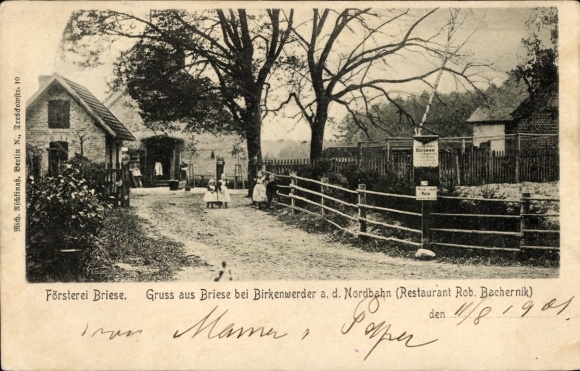 Försterei Briese.
Gruss aus Briese bei Birkenwerder a. d. Nordbahn (Restaurant Rob. Bachernik)
den 11/8 1901
von Mama u Papa
Rich. Berlin N., 10